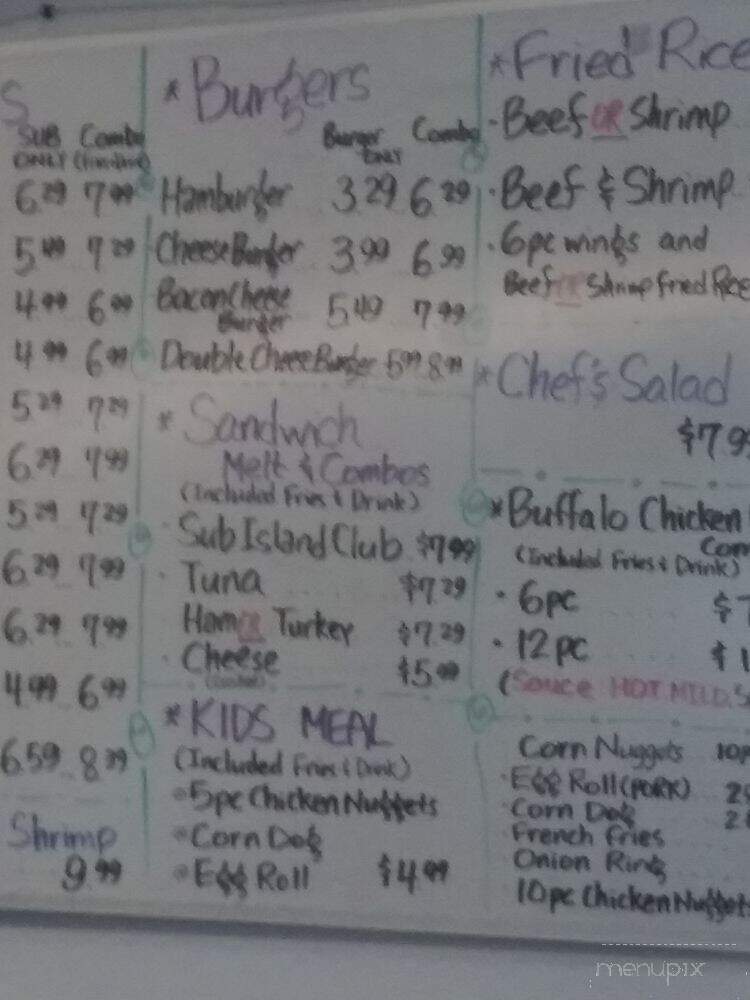 S
SUB Combo
ONLY
6.29 7.99
5.49 7.29
4.99 6.99
4.99 6.99
5.29 7.29
6.29 7.99
5.29 7.29
6.29 7.99
6.29 7.99
4.99 6.99
6.59 8.29
Shrimp
9.99
*Burgers
Burger Combo
ONLY
Hamburger 3.29 6.29
Cheese Burger 3.99 6.99
Bacon Cheese
Burger 5.49 7.99
Double Cheese Burger 5.99 8.99
*Sandwich
Melt & Combos
(Included Fries & Drink)
Sub Island Club $7.99
Tuna $7.29
Ham OR Turkey $7.29
Cheese $5.99
*KIDS MEAL
(Included Fries & Drink)
5pc Chicken Nuggets
Corn Dog
Egg Roll $4.99
*Fried Rice
Beef OR Shrimp
Beef & Shrimp
6pc wings and
Beef OR Shrimp Fried Rice
*Chef's Salad
$7.9
*Buffalo Chicken
Com
(Included Fries & Drink)
6pc $
12pc $1
(Sauce HOT. MILD. S
Corn Nuggets 10p
Egg Roll (PORK) 2
Corn Dog 2
French Fries
Onion Ring
10pc Chicken Nuggets
menupix